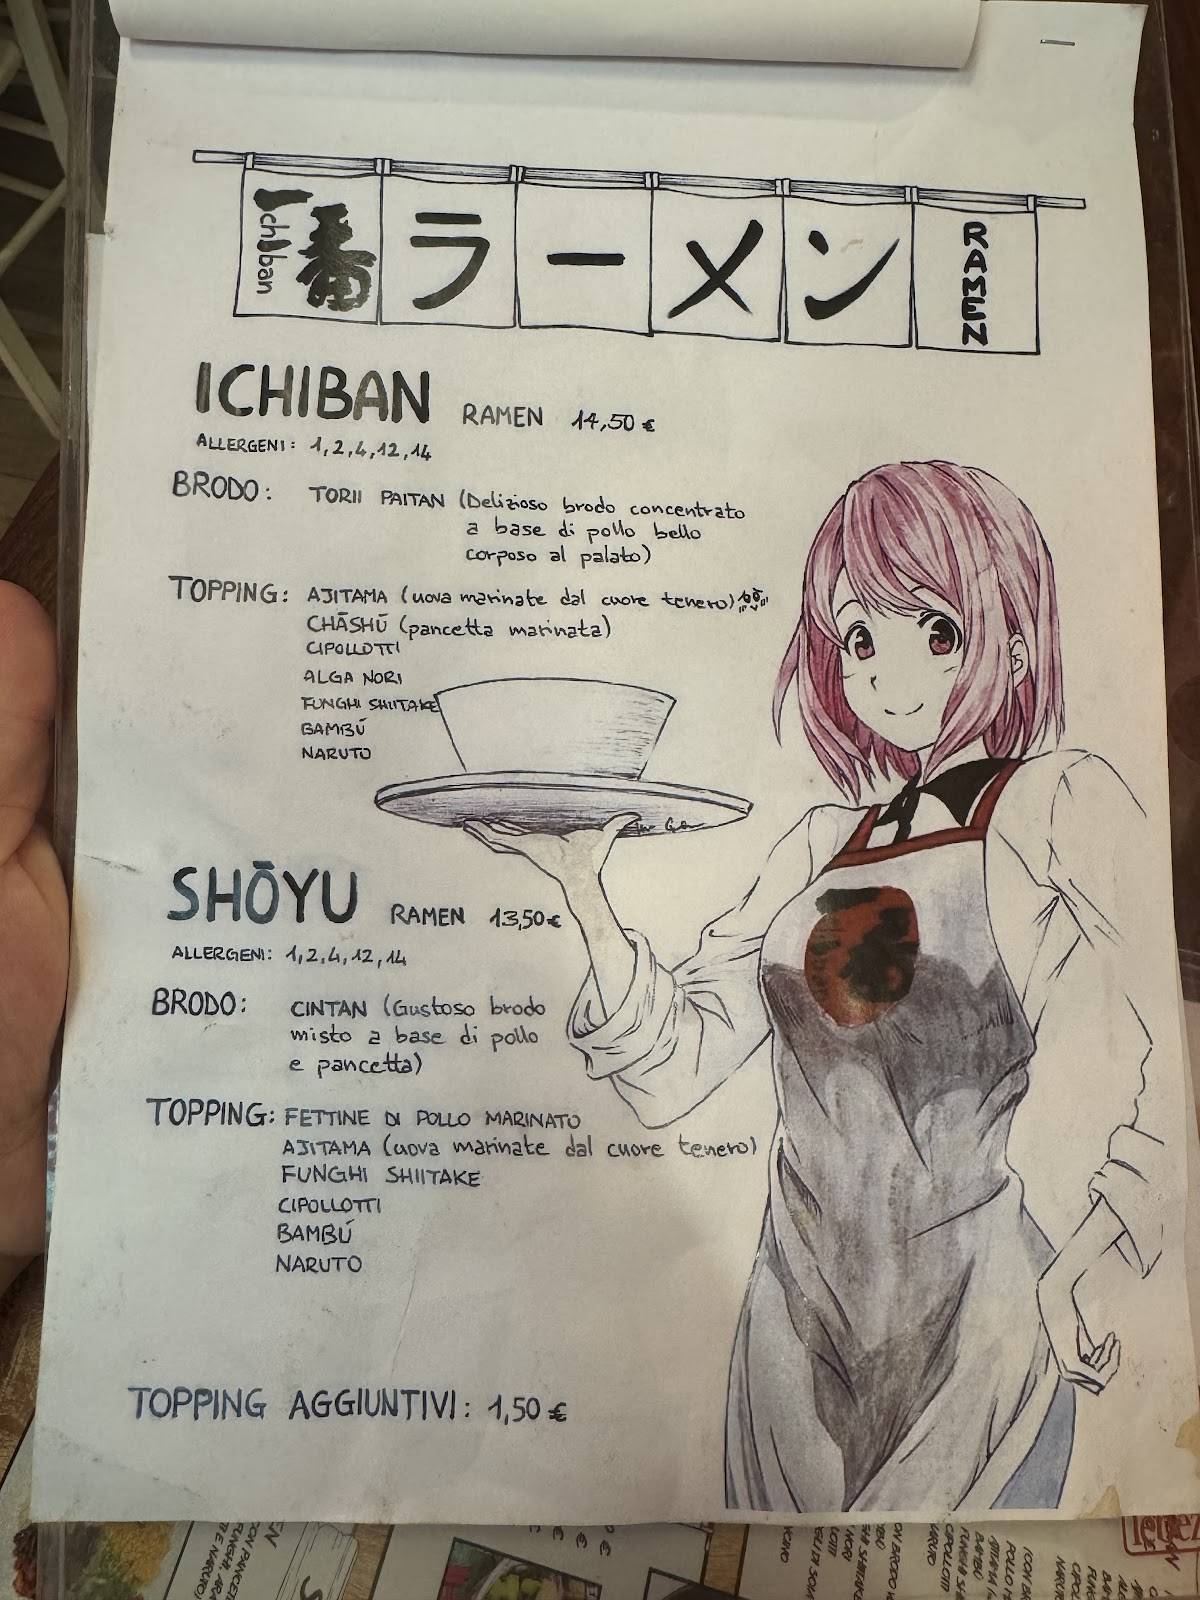 一番
Ichiban
ラーメン
RAMEN
ICHIBAN RAMEN 14,50 €
ALLERGENI: 1,2,4,12,14
BRODO: TORII PAITAN (Delizioso brodo concentrato
a base di pollo bello
corposo al palato)
TOPPING: AJITAMA (uova marinate dal cuore tenero)
CHĀSHŪ (pancetta marinata)
CIPOLLOTTI
ALGA NORI
FUNGHI SHIITAKE
BAMBÚ
NARUTO
SHŌYU RAMEN 13,50 €
ALLERGENI: 1,2,4,12,14
BRODO: CINTAN (Gustoso brodo
misto a base di pollo
e pancetta)
TOPPING: FETTINE DI POLLO MARINATO
AJITAMA (uova marinate dal cuore tenero)
FUNGHI SHIITAKE
CIPOLLOTTI
BAMBÚ
NARUTO
TOPPING AGGIUNTIVI: 1,50 €